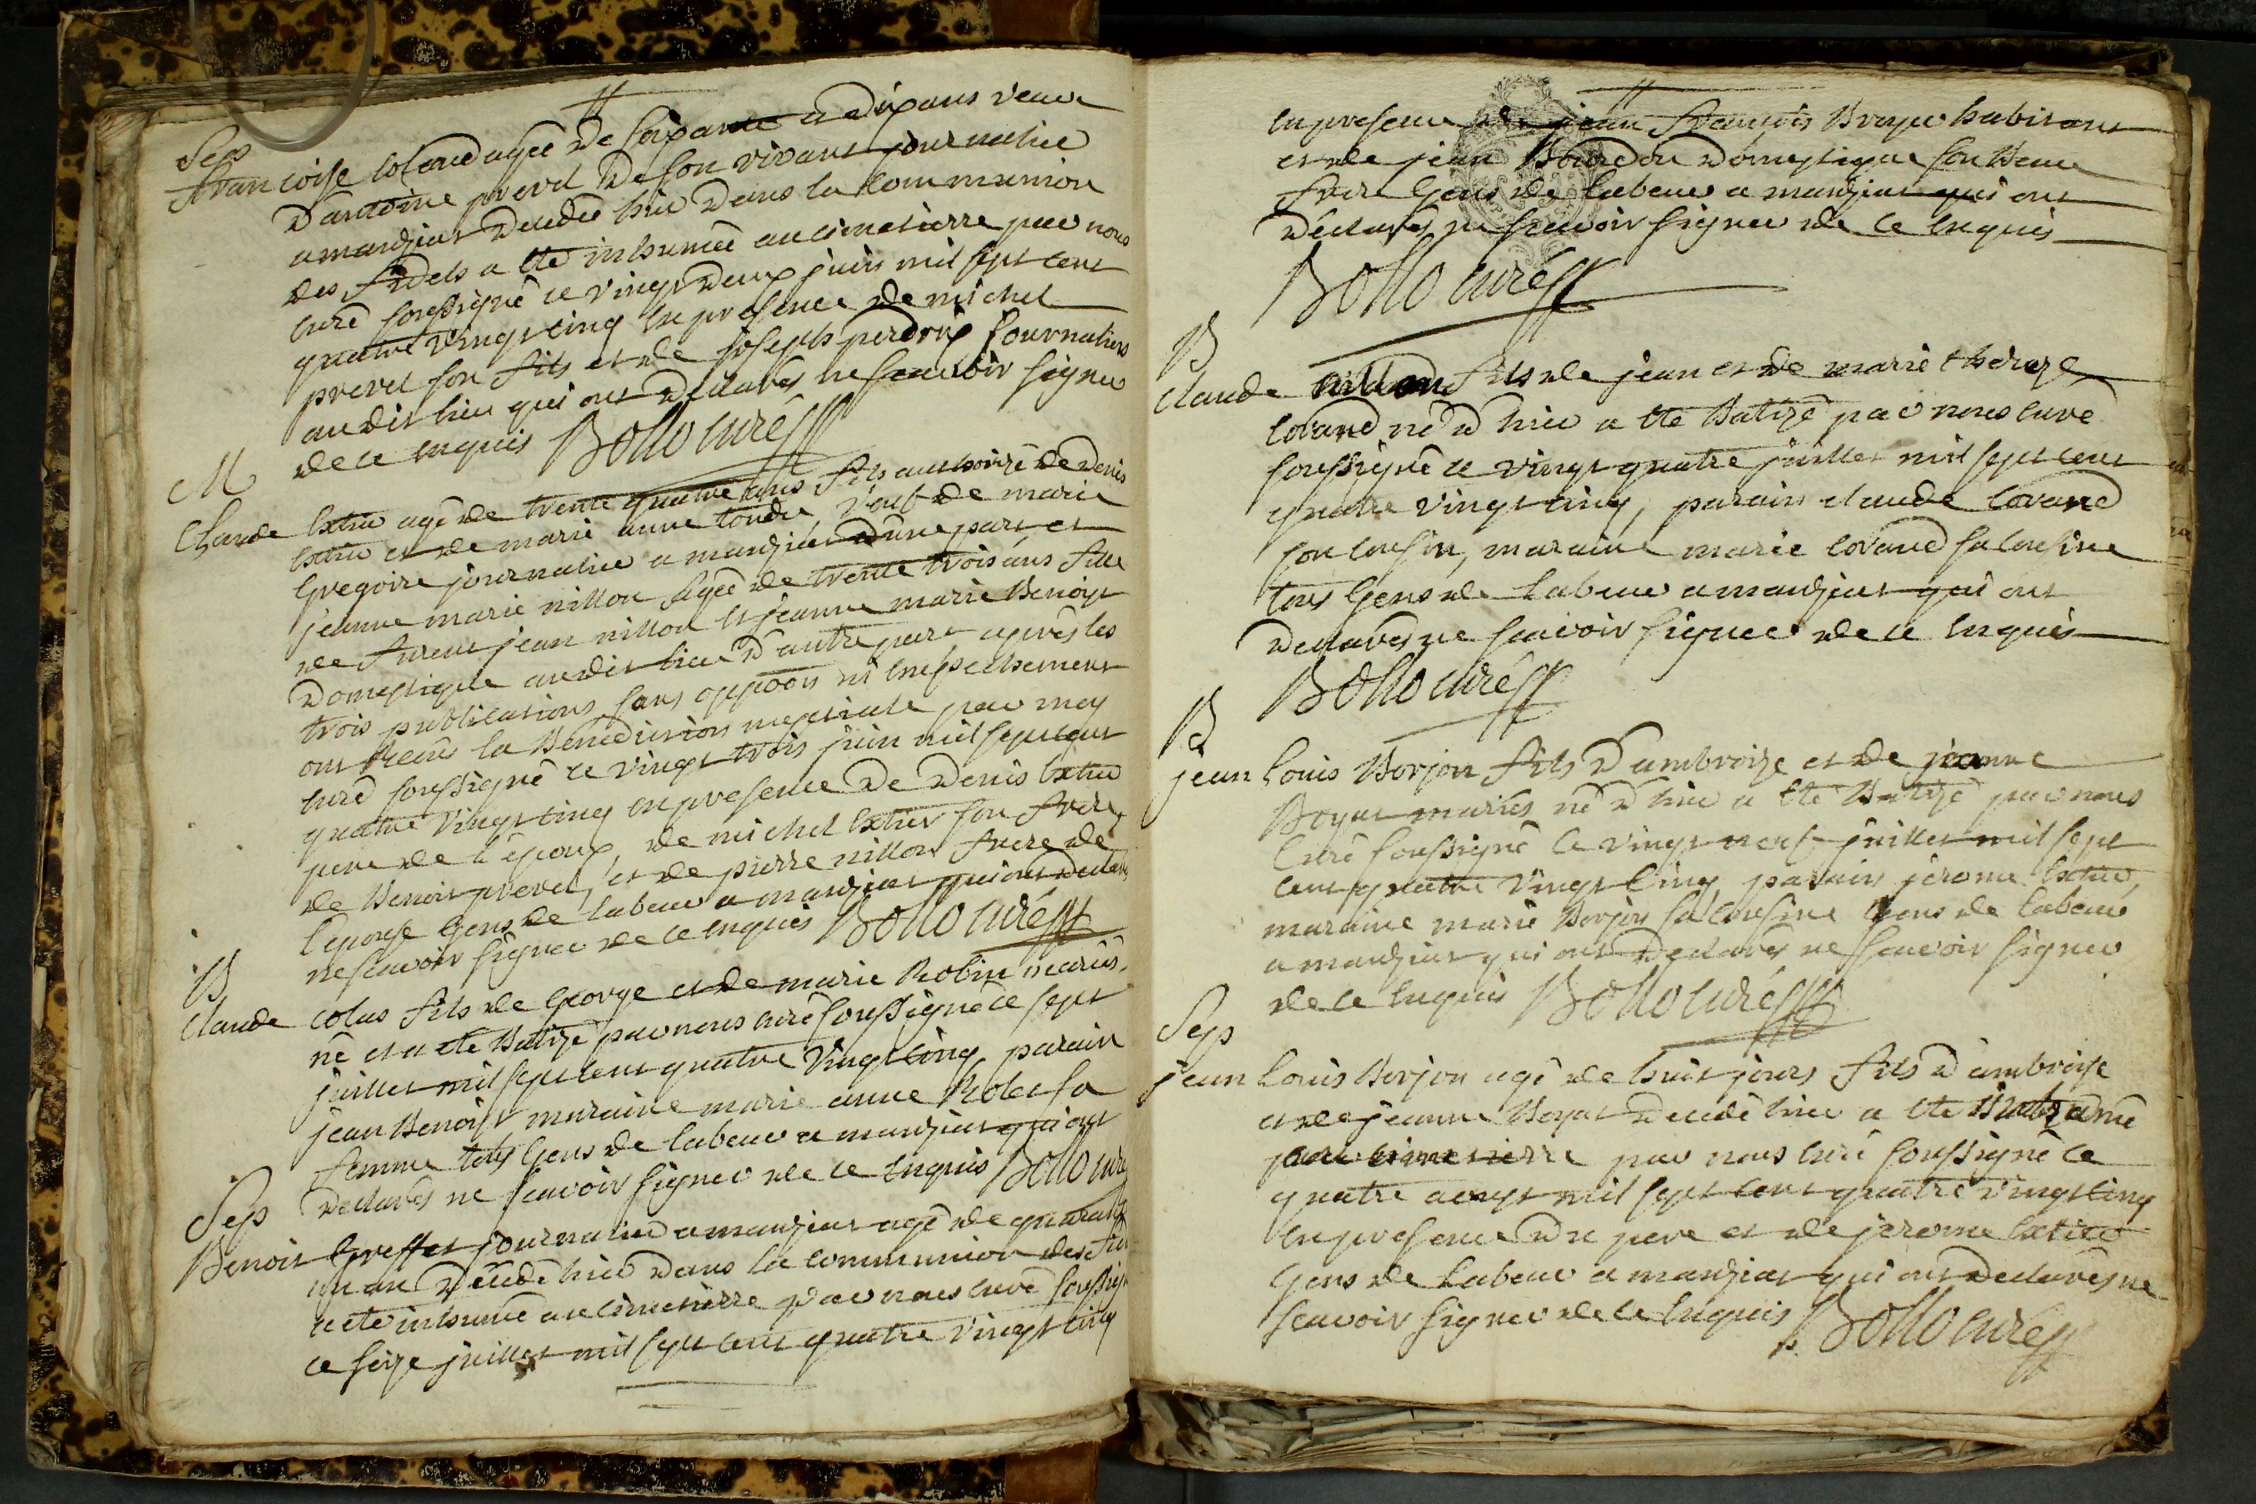 Sep
Francoise Coland agée de soixante et dix ans veuve
d'antoine prevel de son vivant journalier
a manziat decedée hier dans la communion
des fidels a été inhumée au cimetierre par nous
curé soussigné ce vingt deux juin mil sept cent
quatre vingt cinq en presence de michel
prevel son fils et de joseph perdrix journaliers
au dit lieu qui ont declarés ne scavoir signer
de ce enquis Bollo curé
M
Claude extier agé de trente quatre ans fils authorizé de denis
extier et de marie anne tondu, veuf de marie
Gregoire journalier a manziat d'une part et
jeanne marie nillon agée de trente trois ans fille
de furent jean nillon et jeanne marie Benoist
domestique au dit lieu d'autre part apres les
trois publications sans oppoõn ni empechement
ont recus la Benediction nuptiale par moy
curé soussigné ce vingt trois juin mil sept cent
quatre vingt cinq en presence de denis extier
pere de l'epoux, de michel extier son frere,
de Benoit prevel, et de pierre nillon frere de
l'epouse gens de labeur a manziat qui ont declarés
ne scavoir signer de ce enquis Bollo curé
B
Claude colas fils de George et de marie Robin mariés,
né et a été Batizé par nous curé soussigné ce sept
juillet mil sept cent quatre vingt cinq parain
jean Benoist maraine marie anne Rolet sa
femme tous gens de labeur a manziat qui ont
declarés ne scavoir signer de ce enquis Bollo curé
Sep
Benoit Greffet journalier a manziat agé de quarante
un an decedé hier dans la communion des
a été inhumé au cimetierre par nous curé
ce seize juillet mil sept cent quatre vingt cinq
en presence de jean francois Broyer habitant
et de jean Bourdon domestique son Beau
frere gens de labeur a manziat qui ont
declarés ne scavoir signer de ce enquis
Bollo curé
B
claude nillon fils de jean et de marie therese
Coland né d'hier a été Batizé par nous curé
soussigné ce vingt quatre juillet mil sept cent
quatre vingt cinq, parain claude Coland
son cousin, maraine marie Coland sa cousine
tous gens de labeur a manziat qui ont
declarés ne scavoir signer de ce enquis
Bollo curé
B
jean Louis Borjon fils d'ambroize et de jeanne
Boyat mariés né d'hier a été Batizé par nous
Curé soussigné Ce vingt neuf juillet mil sept
cent quatre vingt cinq parain jerome extier,
maraine marie Borjon sa cousine gens de labeur
a manziat qui ont declarés ne scavoir signer
de ce enquis Bollo curé
Sep
jean Louis Borjon agé de huit jours fils d'ambroise
et de jeanne Boyat decedé hier a été inhumé
au cimetierre par nous curé soussigné ce
quatre aoust mil sept cent quatre vingt cinq
en presence du pere et de jerome extier
gens de labeur a manziat qui ont declarés ne
scavoir signer de ce enquis Bollo curé